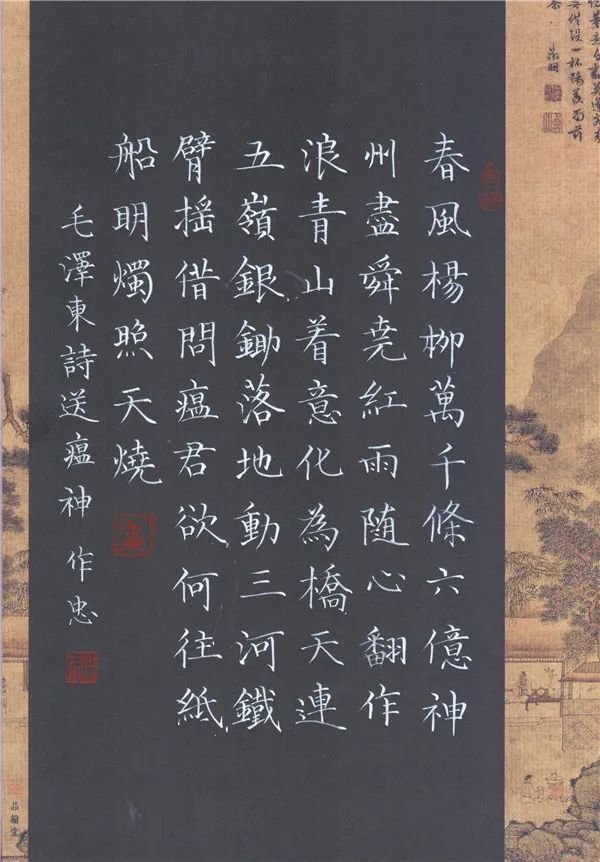 春風楊柳萬千條六億神
州盡舜尭紅雨随心翻作
浪青山着意化為橋天連
五嶺銀鋤落地動三河鐵
臂揺借問瘟君欲何往紙
船明燭照天燒
毛澤東詩送瘟神 作忠
一杯陽羨雨前
茶 徵明
品翰堂